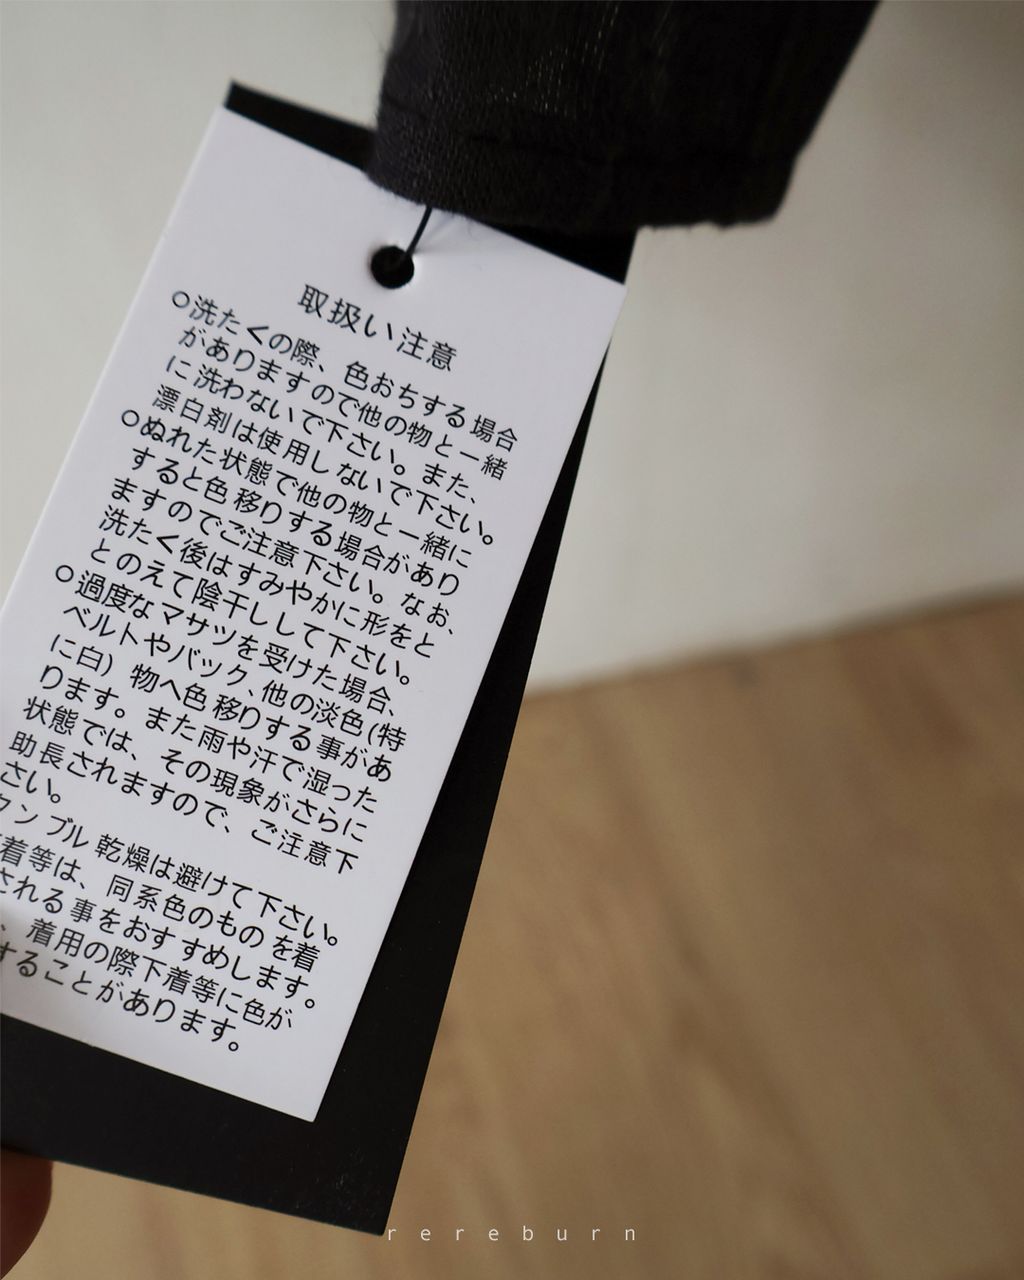 取扱い注意
○洗たくの際、色おちする場合
がありますので他の物と一緒
に洗わないで下さい。また、
漂白剤は使用しないで下さい。
○ぬれた状態で他の物と一緒に
すると色移りする場合があり
ますのでご注意下さい。なお、
洗たく後はすみやかに形をと
とのえて陰干しして下さい。
○過度なマサツを受けた場合、
ベルトやバック、他の淡色(特
に白)物へ色移りする事があ
ります。また雨や汗で湿った
状態では、その現象がさらに
助長されますので、ご注意下
さい。
ンブル乾燥は避けて下さい。
着等は、同系色のものを着
される事をおすすめします。
、着用の際下着等に色が
することがあります。
rereburn